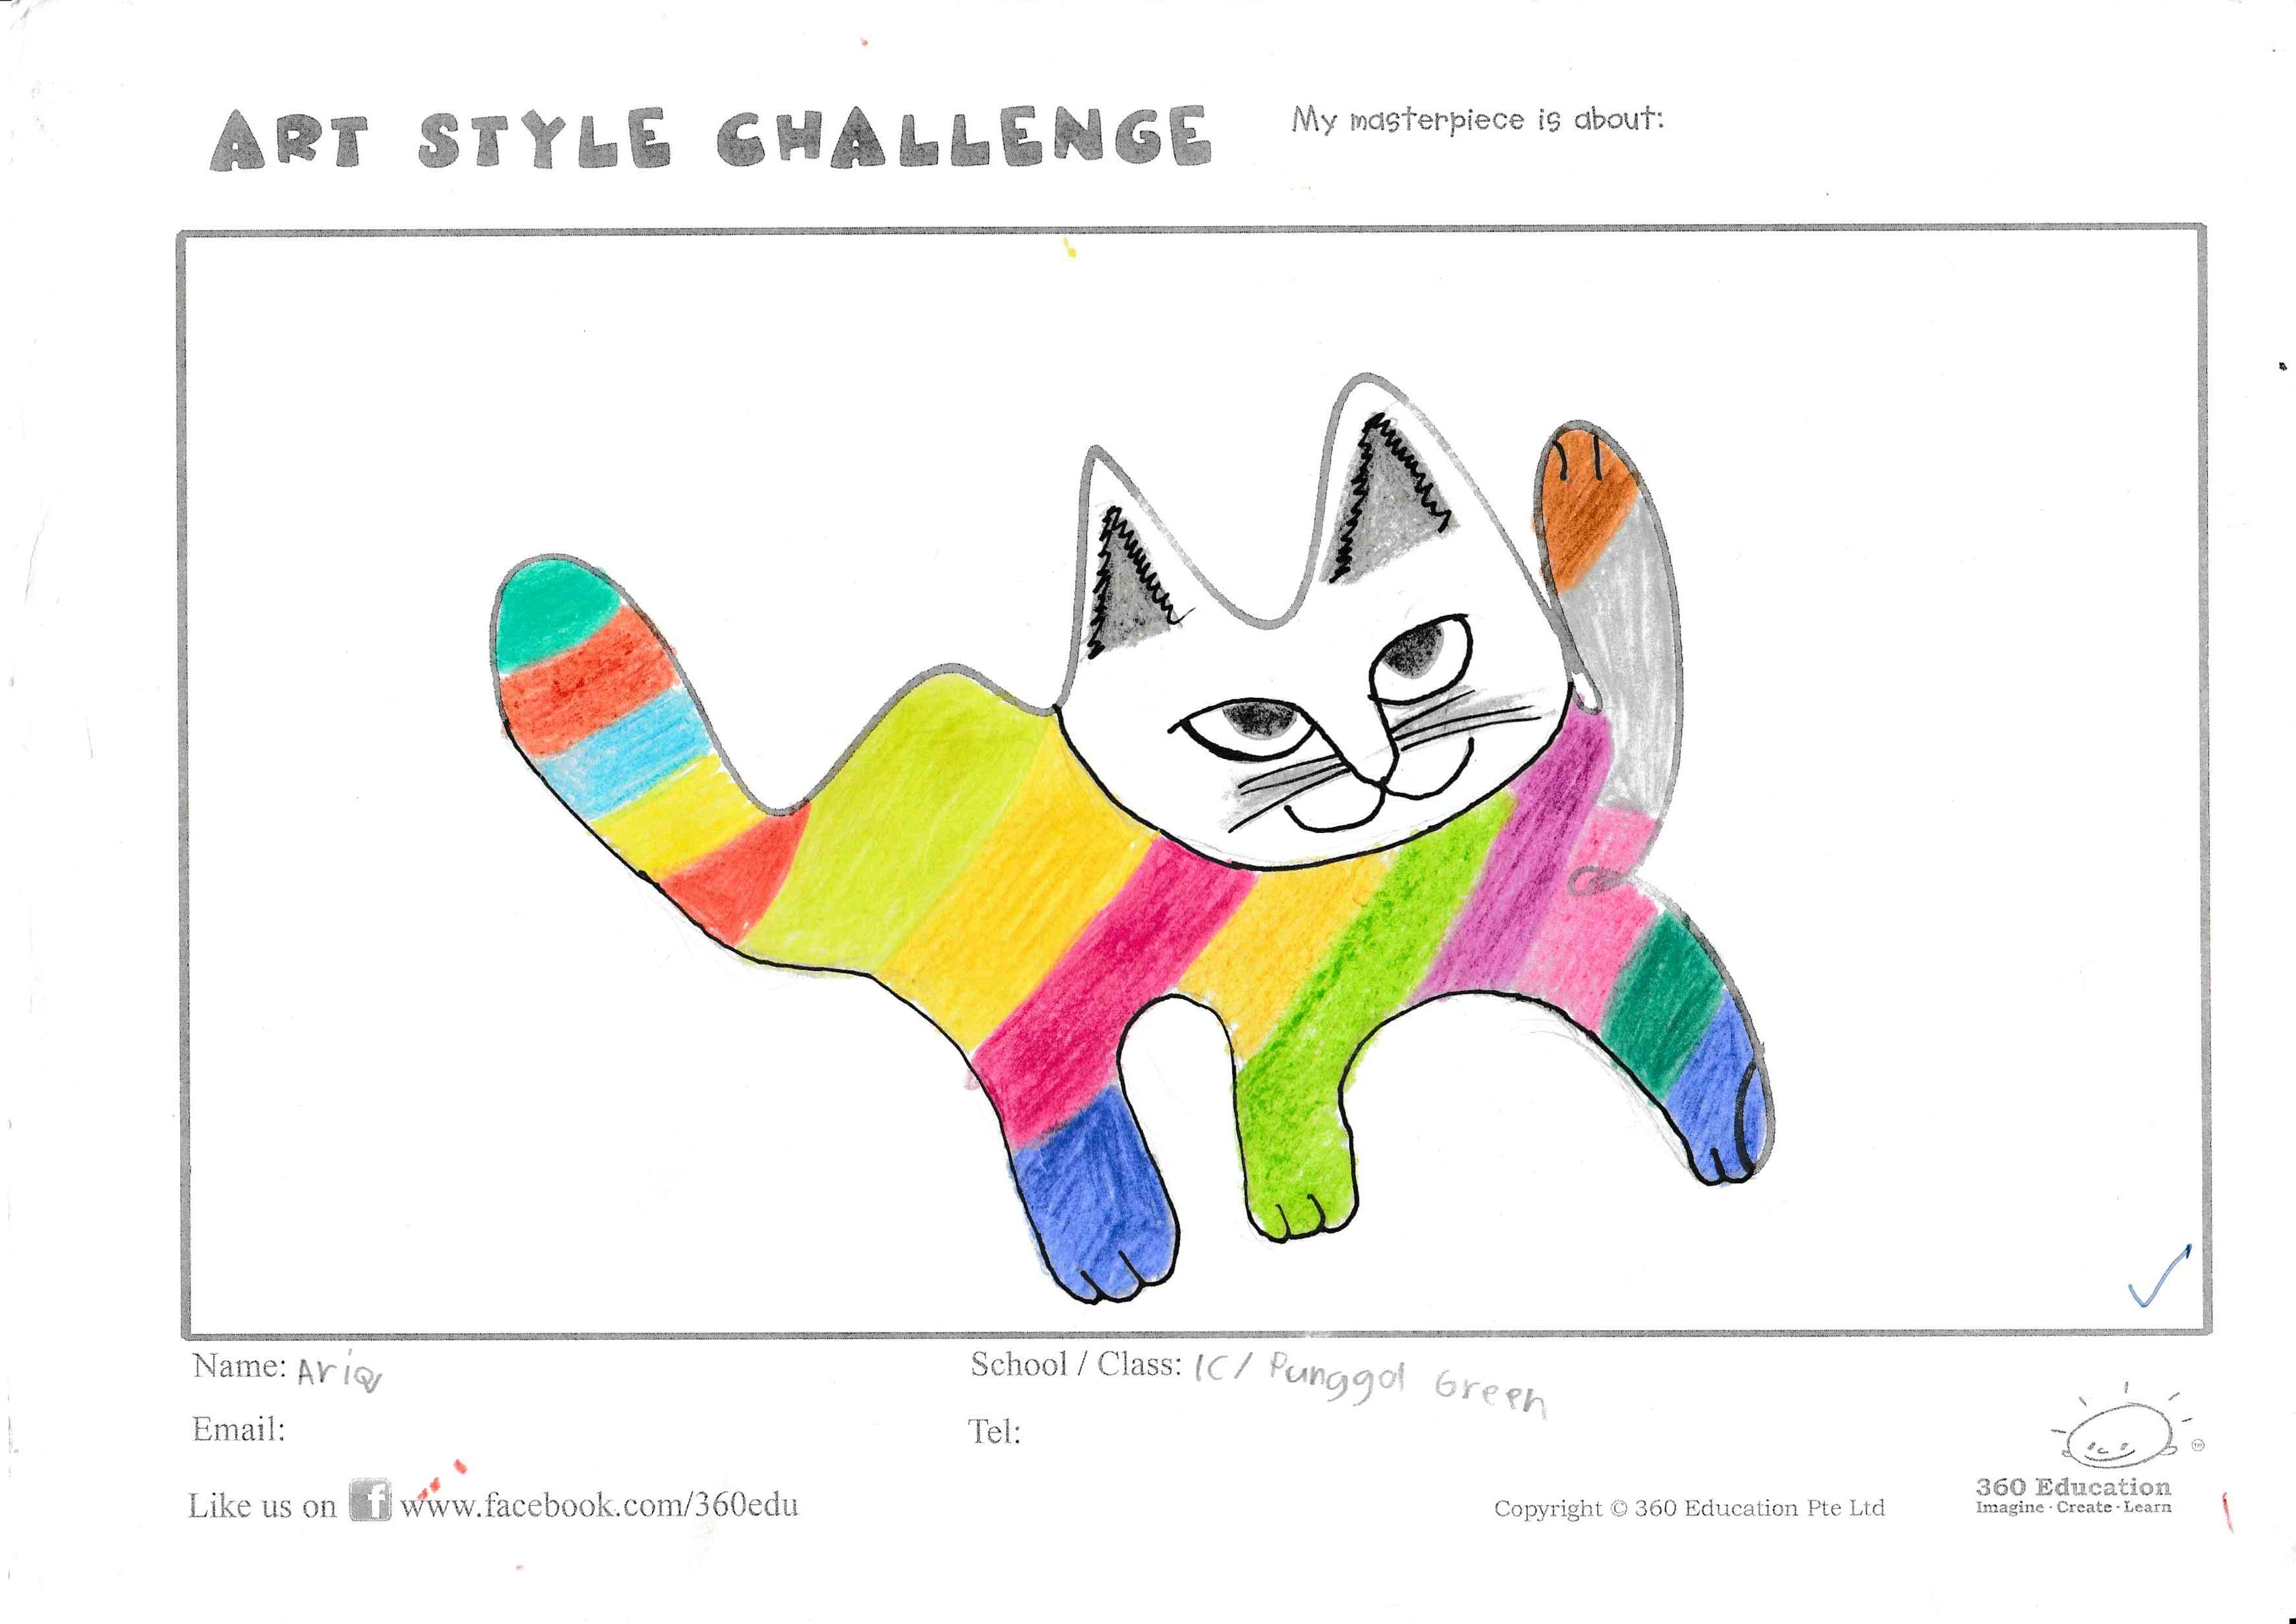 ART STYLE CHALLENGE
My masterpiece is about:
Name: Ariq
School / Class: 1C / Punggol Green
Email:
Tel:
Like us on f www.facebook.com/360edu
Copyright © 360 Education Pte Ltd
360 Education
Imagine · Create · Learn